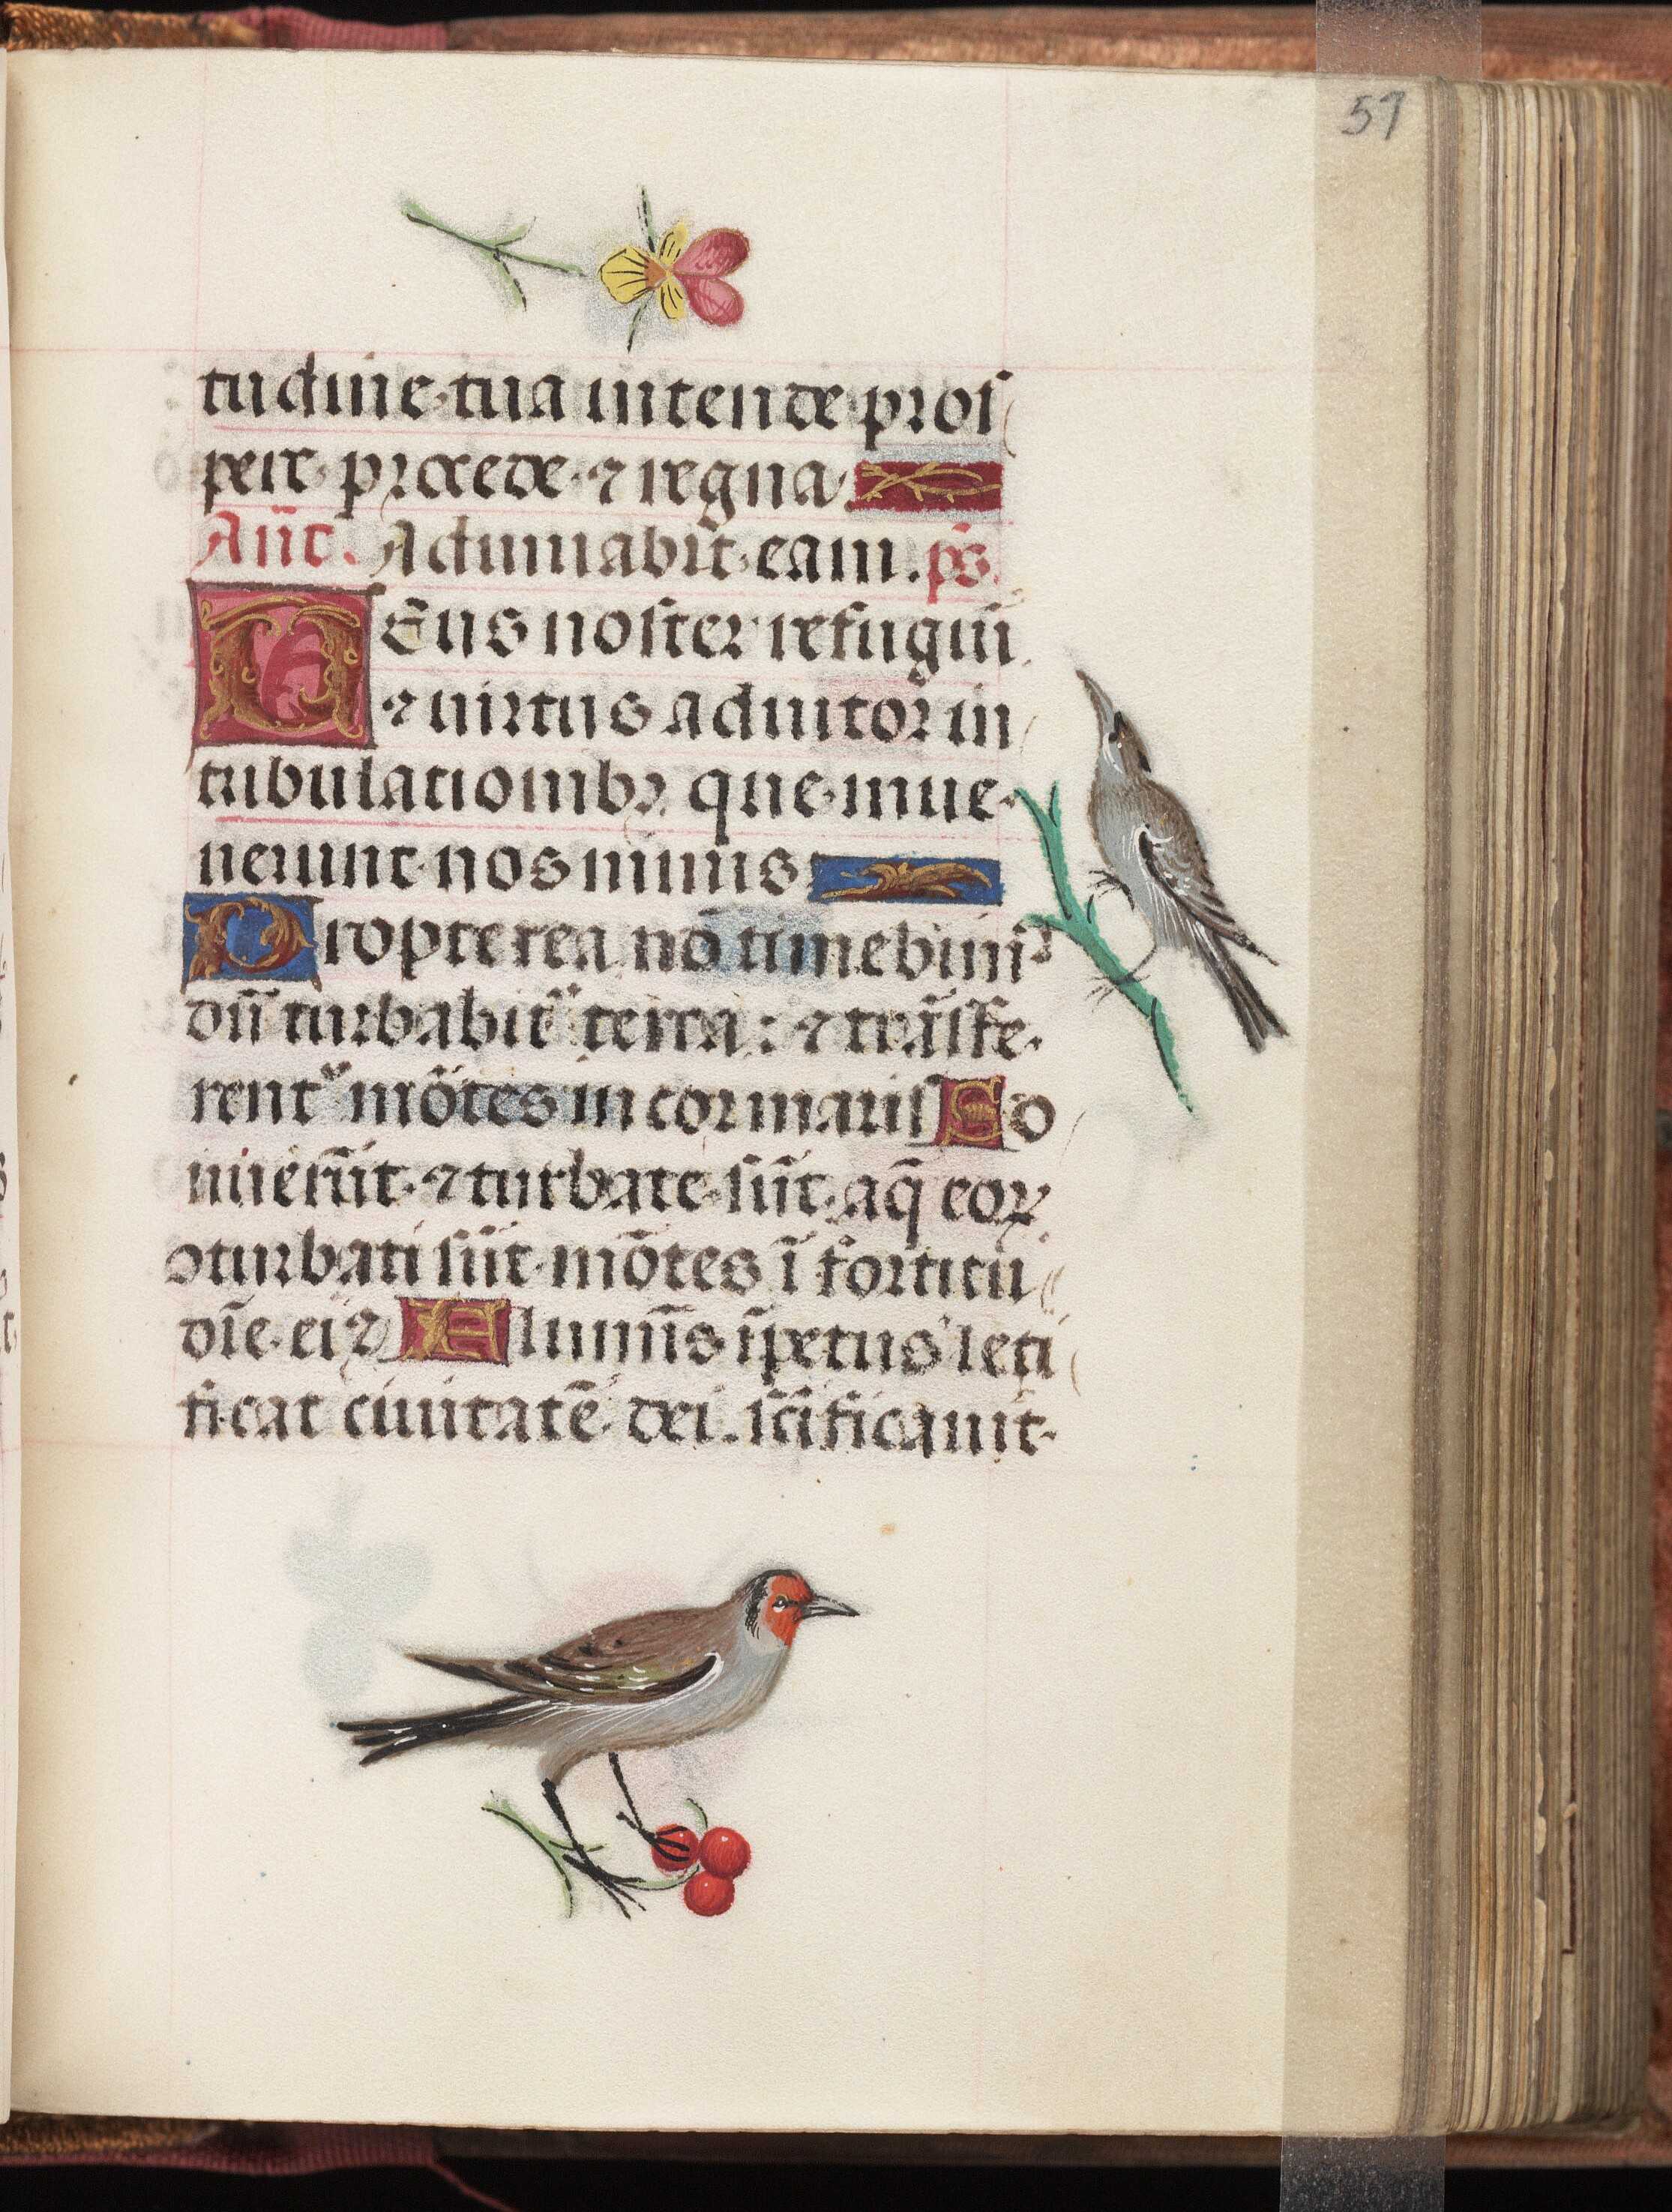 57
tudine tua intende prosper
pere procede ⁊ regna
Añt. Adiuuabit eam. ps̄.
DEus noster refugiū
⁊ uirtus adiutor in
tribulationibꝫ que inue
nerunt nos nimis
Propterea nō timebimꝰ
dū turbabit᷑ terra: ⁊ trāsfe
rent᷑ mōtes in cor maris So
nuerūt ⁊ turbate sūt aq̄ eoꝝ
ↄturbati sūt mōtes ī fortitu
dīe eiꝰ Fluminis īpetus leti
ficat ciuitatē dei. sc̄ificauit